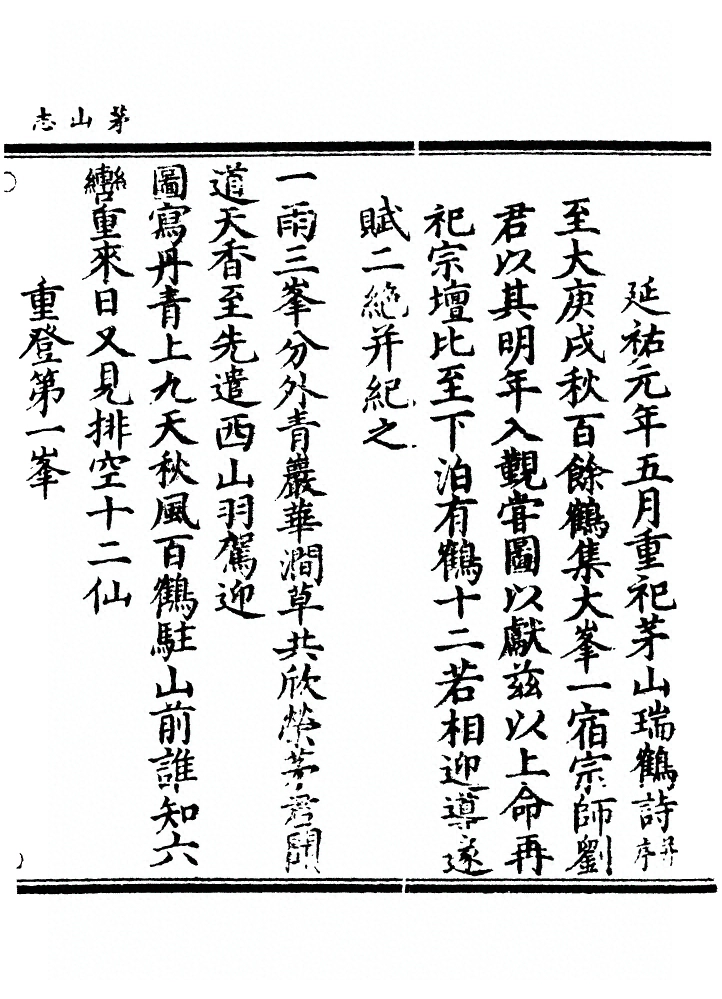 茅山志
延祐元年五月重祀茅山瑞鶴詩并序
至大庚戌秋百餘鶴集大峯一宿宗師劉
君以其明年入覲嘗圖以獻茲以上命再
祀宗壇比至下泊有鶴十二若相迎導遂
賦二絶并紀之
一雨三峯分外青巖華澗草共欣榮茅君開
道天香至先遣西山羽駕迎
圖寫丹青上九天秋風百鶴駐山前誰知六
轡重來日又見排空十二仙
重登第一峯